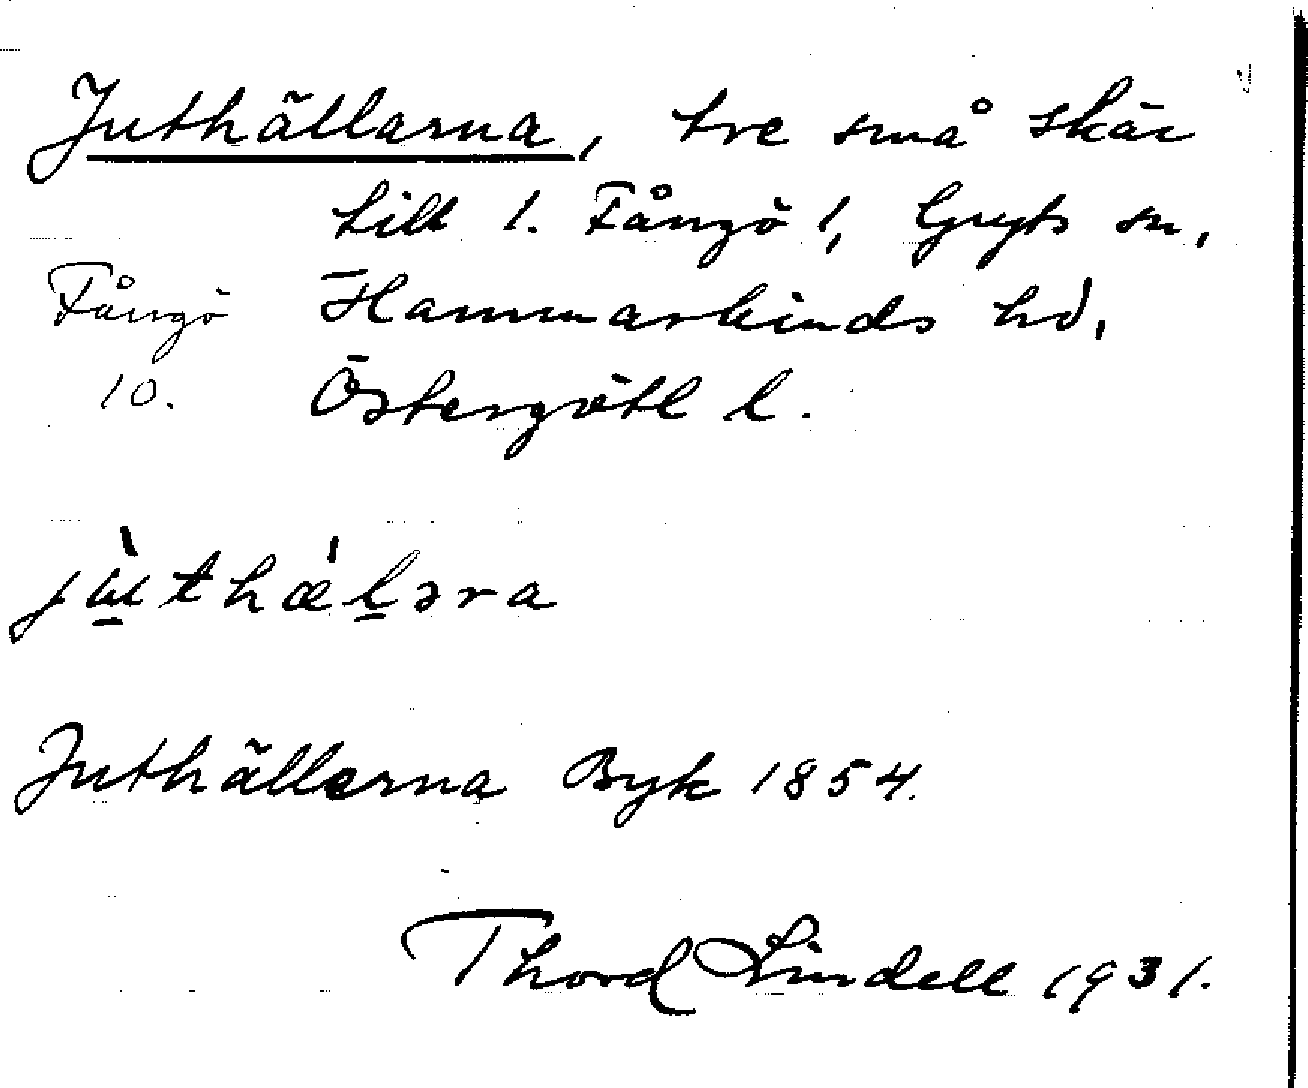 Juthällarna, tre små skär
till 1. Fångö 1, Gryts sn,
Fångö Hammarkinds hd,
10. Östergötl l.
jùthǽlǝra
Juthällerna Byk 1854.
Thord Lindell 1931.